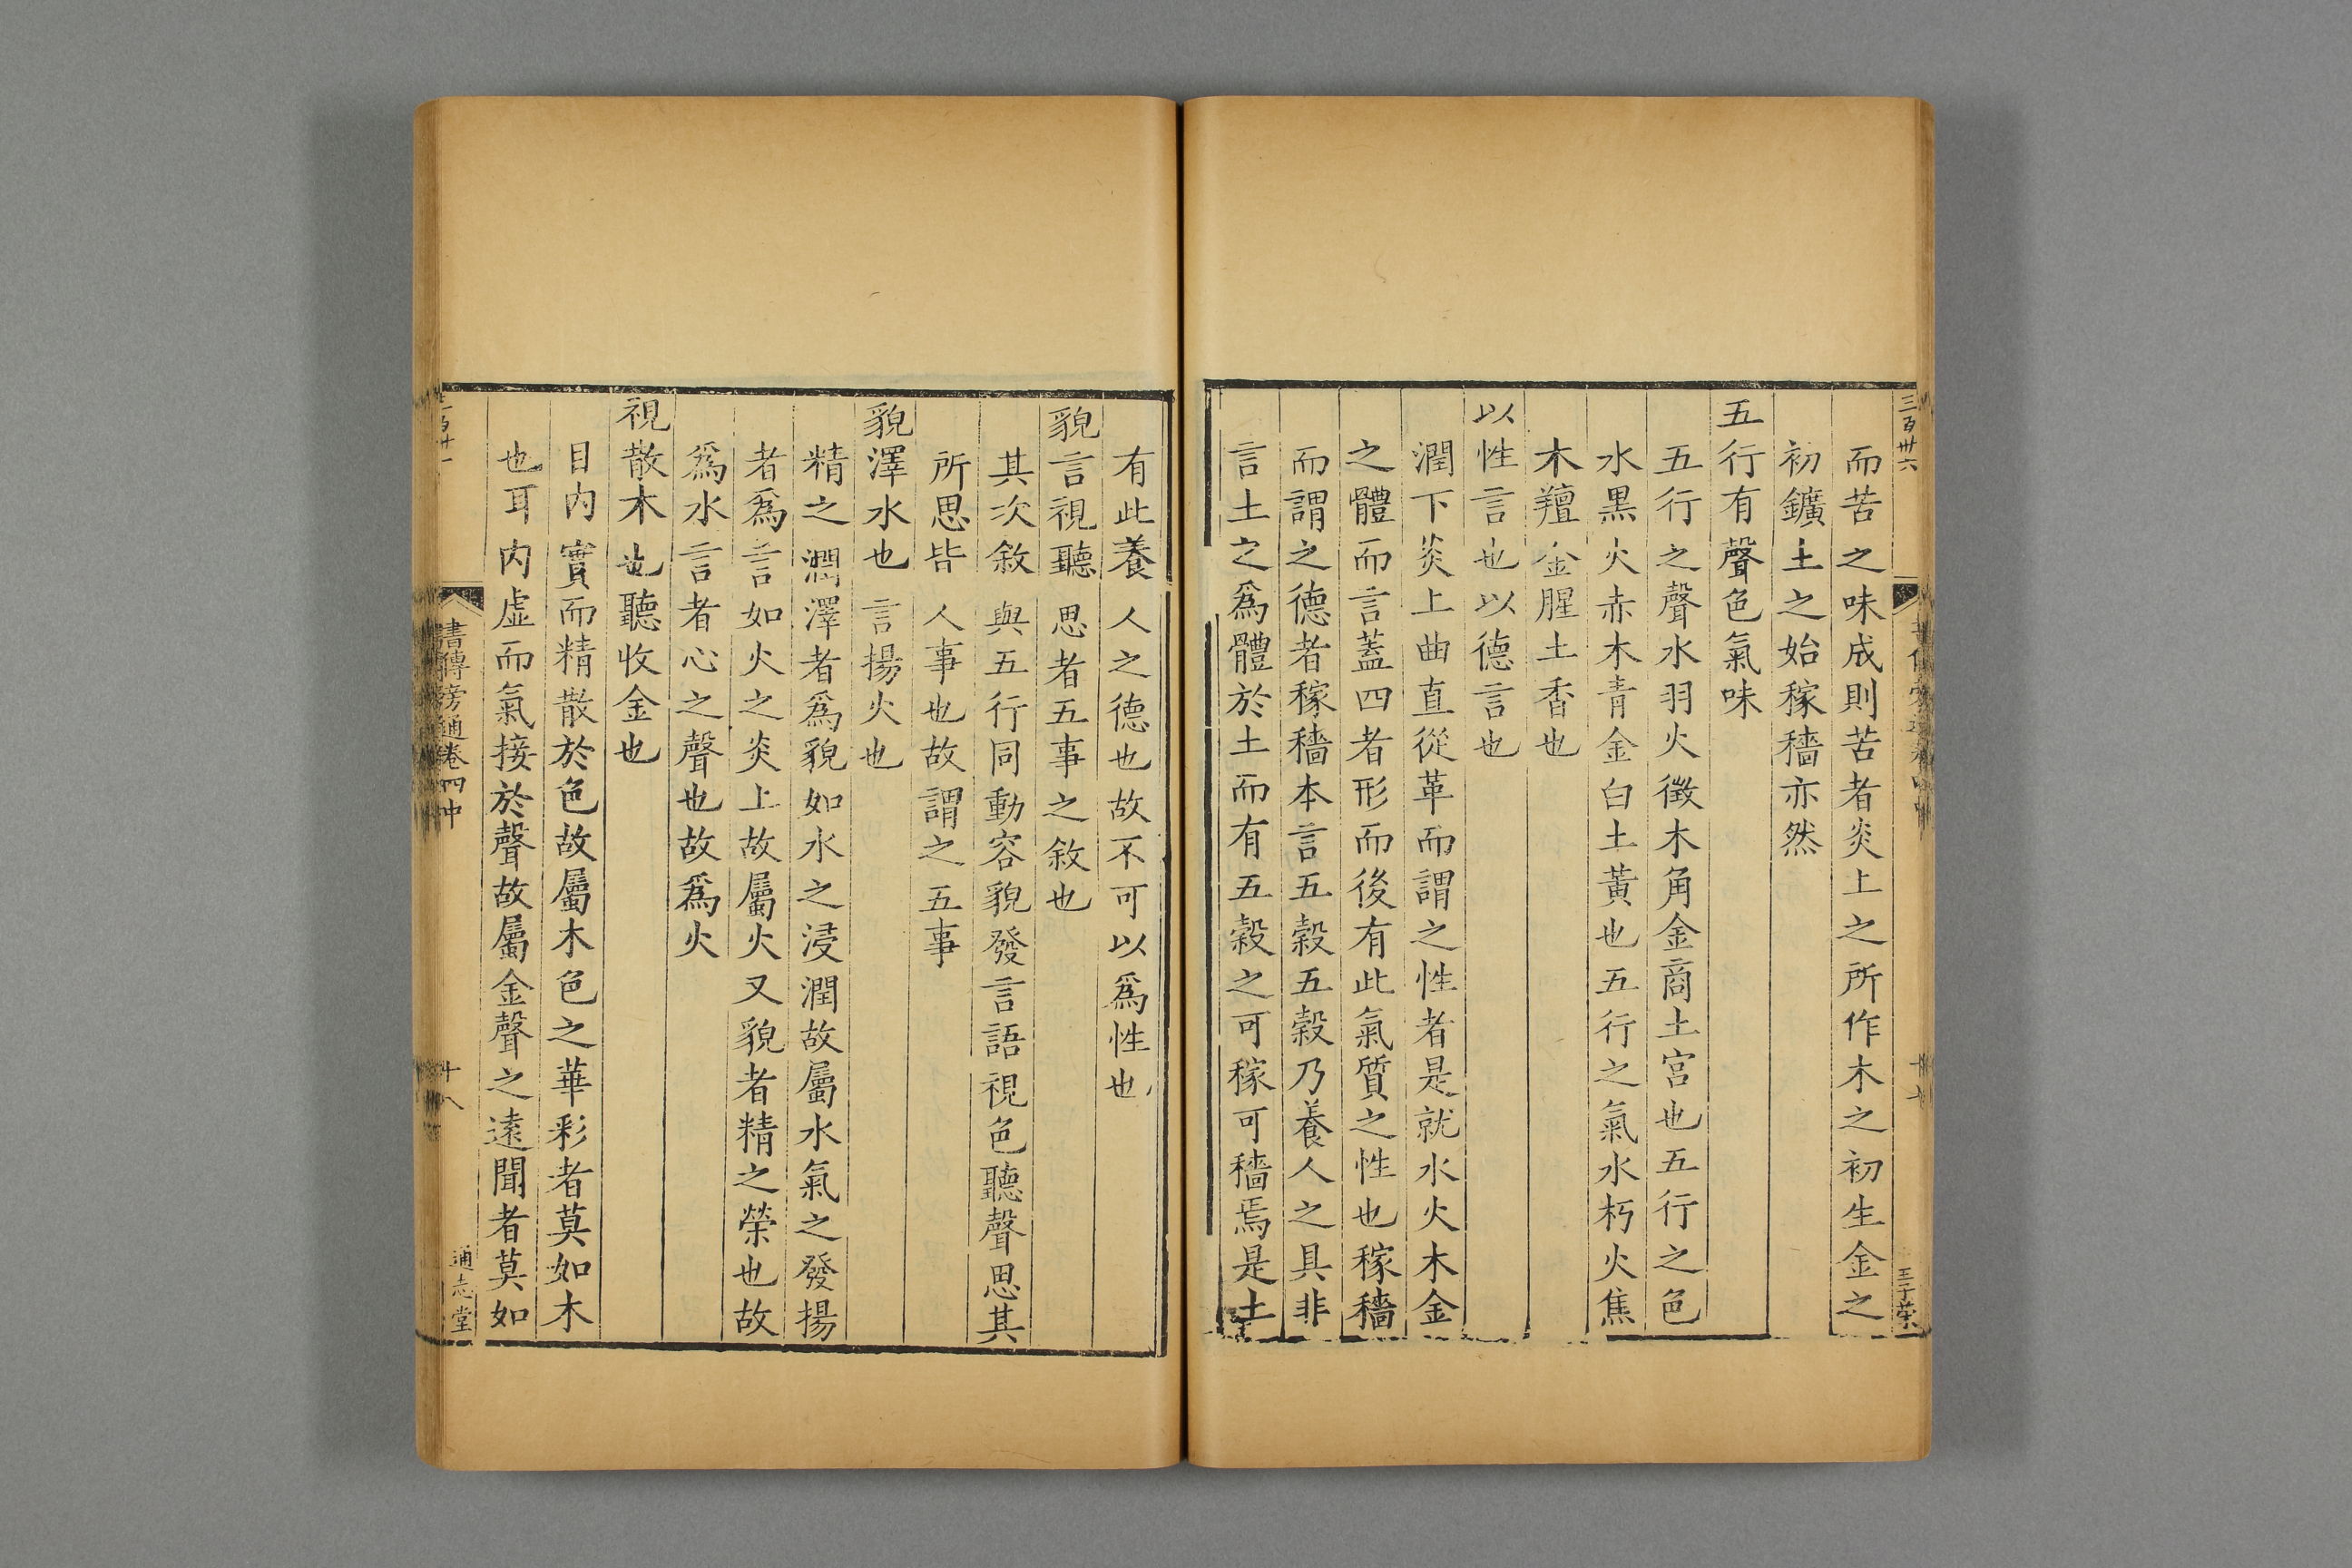 三百卅六
王子榮
而苦之味成則苦者炎上之所作木之初生金之
初鑛土之始稼穡亦然
五行有聲色氣味
五行之聲水羽火徵木角金商土宫也五行之色
水黑火赤木青金白土黃也五行之氣水朽火焦
木羶金腥土香也
以性言也以德言也
潤下炎上曲直從革而謂之性者是就水火木金
之體而言蓋四者形而後有此氣質之性也稼穡
而謂之德者稼穡本言五穀五穀乃養人之具非
言土之爲體於土而有五穀之可稼可穡焉是土
有此養人之德也故不可以爲性也
貌言視聽思者五事之敘也
其次敘與五行同動容貌發言語視色聽聲思其
所思皆人事也故謂之五事
貌澤水也言揚火也
精之潤澤者爲貌如水之浸潤故屬水氣之發揚
者爲言如火之炎上故屬火又貌者精之榮也故
爲水言者心之聲也故爲火
視散木也聽收金也
目内實而精散於色故屬木色之華彩者莫如木
也耳内虚而氣接於聲故屬金聲之遠聞者莫如
書傳旁通卷四中
十八
通志堂